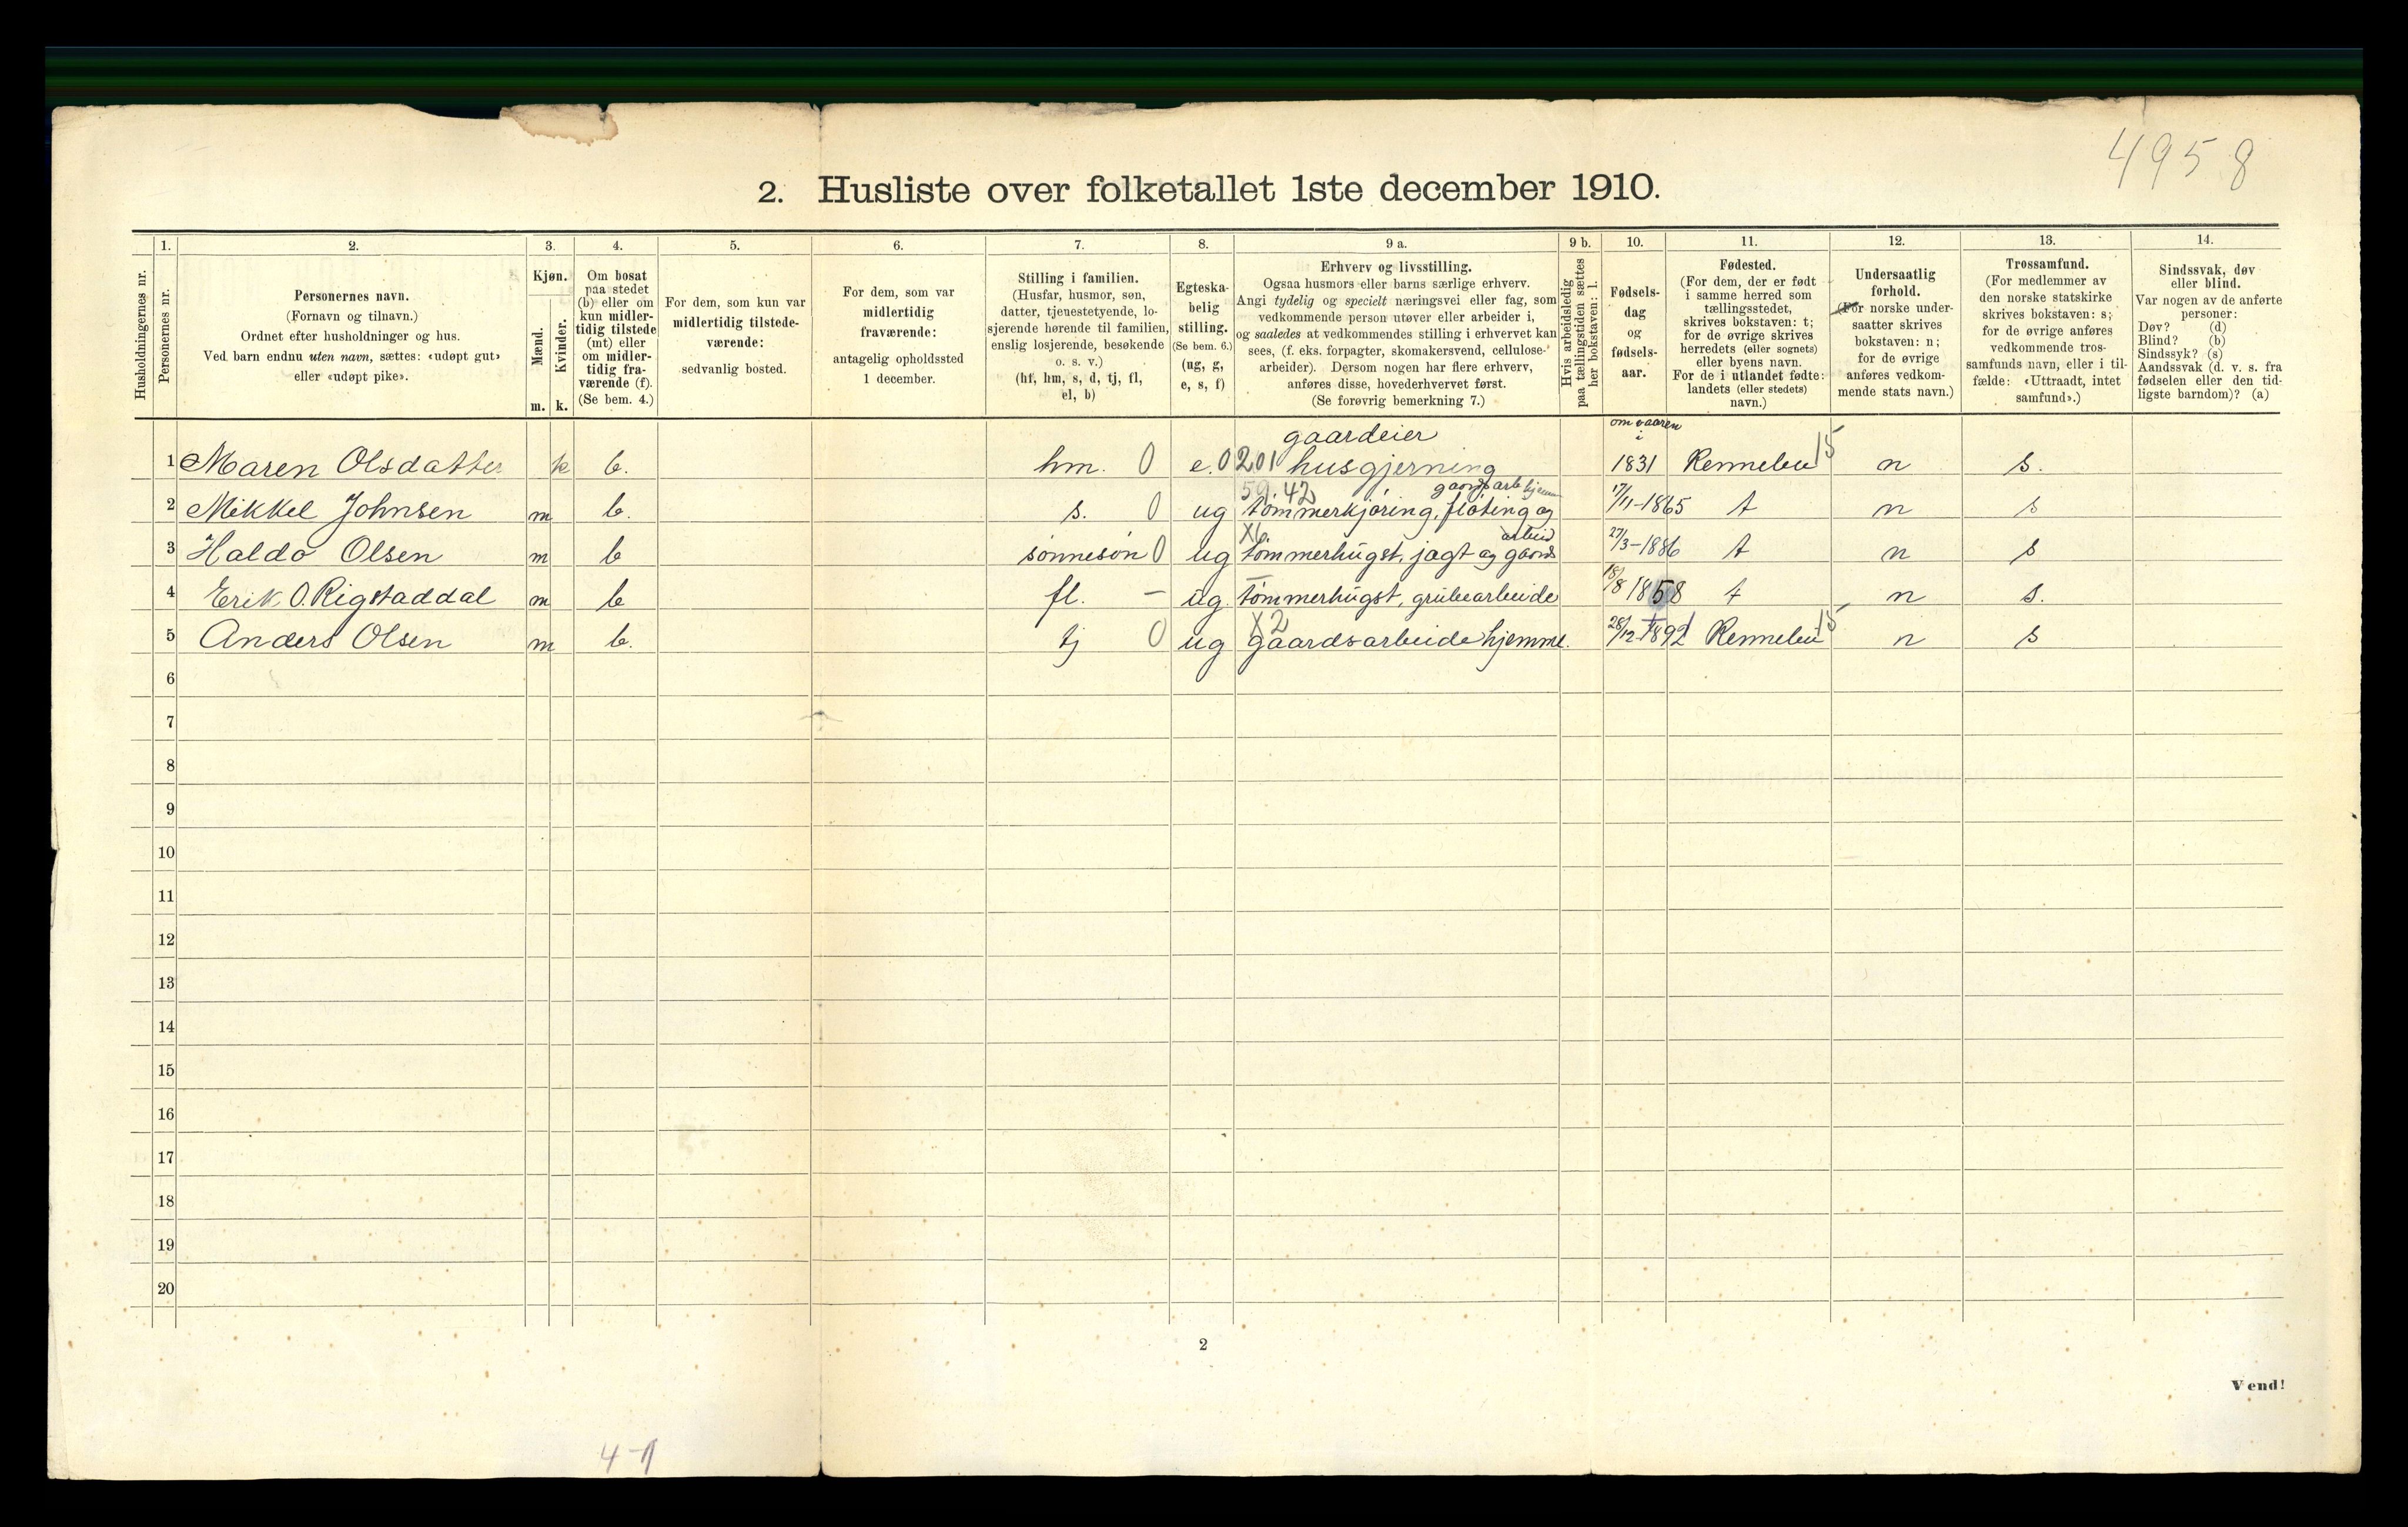 4958
2. Husliste over folketallet 1ste december 1910.
Husholdningernes nr.
1.
Personernes nr.
2.
Personernes navn.
(Fornavn og tilnavn.)
Ordnet efter husholdninger og hus.
Ved barn endnu uten navn, sættes: «udøpt gut»
eller «udøpt pike».
3.
Kjøn.
Mænd.
Kvinder.
m. k.
4.
Om bosat
paa stedet
(b) eller om
kun midler-
tidig tilstede
(mt) eller
om midler-
tidig fra-
værende (f).
(Se bem. 4.)
5.
For dem, som kun var
midlertidig tilstede-
værende:
sedvanlig bosted.
6.
For dem, som var
midlertidig
fraværende:
antagelig opholdssted
1 december.
7.
Stilling i familien.
(Husfar, husmor, søn,
datter, tjenestetyende, lo-
sjerende hørende til familien,
enslig losjerende, besøkende
o. s. v.)
(hf, hm, s, d, tj, fl,
el, b)
8.
Egteska-
belig
stilling.
(Se bem. 6.)
(ug, g,
e, s, f)
9 a.
Erhverv og livsstilling.
Ogsaa husmors eller barns særlige erhverv.
Angi tydelig og specielt næringsvei eller fag, som
vedkommende person utøver eller arbeider i,
og saaledes at vedkommendes stilling i erhvervet kan
sees, (f. eks. forpagter, skomakersvend, cellulose-
arbeider). Dersom nogen har flere erhverv,
anføres disse, hovederhvervet først.
(Se forøvrig bemerkning 7.)
9 b.
Hvis arbeidsledig
paa tællingstiden sættes
her bokstaven: l.
10.
Fødsels-
dag
og
fødsels-
aar.
11.
Fødested.
(For dem, der er født
i samme herred som
tællingsstedet,
skrives bokstaven: t;
for de øvrige skrives
herredets (eller sognets)
eller byens navn.
For de i utlandet fødte:
landets (eller stedets)
navn.)
12.
Undersaatlig
forhold.
(For norske under-
saatter skrives
bokstaven: n;
for de øvrige
anføres vedkom-
mende stats navn.)
13.
Trossamfund.
(For medlemmer av
den norske statskirke
skrives bokstaven: s;
for de øvrige anføres
vedkommende tros-
samfunds navn, eller i til-
fælde: «Uttraadt, intet
samfund».)
14.
Sindssvak, døv
eller blind.
Var nogen av de anførte
personer:
Døv? (d)
Blind? (b)
Sindssyk? (s)
Aandssvak (d. v. s. fra
fødselen eller den tid-
ligste barndom)? (a)
gaardeier om vaaren i
1 Maren Olsdatter k b. hm. 0 e. 0 201 husgjerning 1831 Rennebu 15 n s.
59. 42 gaardsarb hjemme
2 Mikkel Johnsen m b. s. 0 ug tømmerkjøring, fløting og 17/11-1865 t n s
X6. arbeid
3 Haldo Olsen m b sønnesøn 0 ug tømmerhugst, jagt og gaards 27/3-1886 t n s
4 Erik O. Rigstaddal m b fl. - ug. tømmerhugst, grubearbeide 18/8 1858 t n s.
X2
5 Anders Olsen m b. tj 0 ug gaardsarbeide hjemme. 28/12 1892 Rennebu 15 n s
6
7
8
9
10
11
12
13
14
15
16
17
18
19
20
2
Vend!
4-1